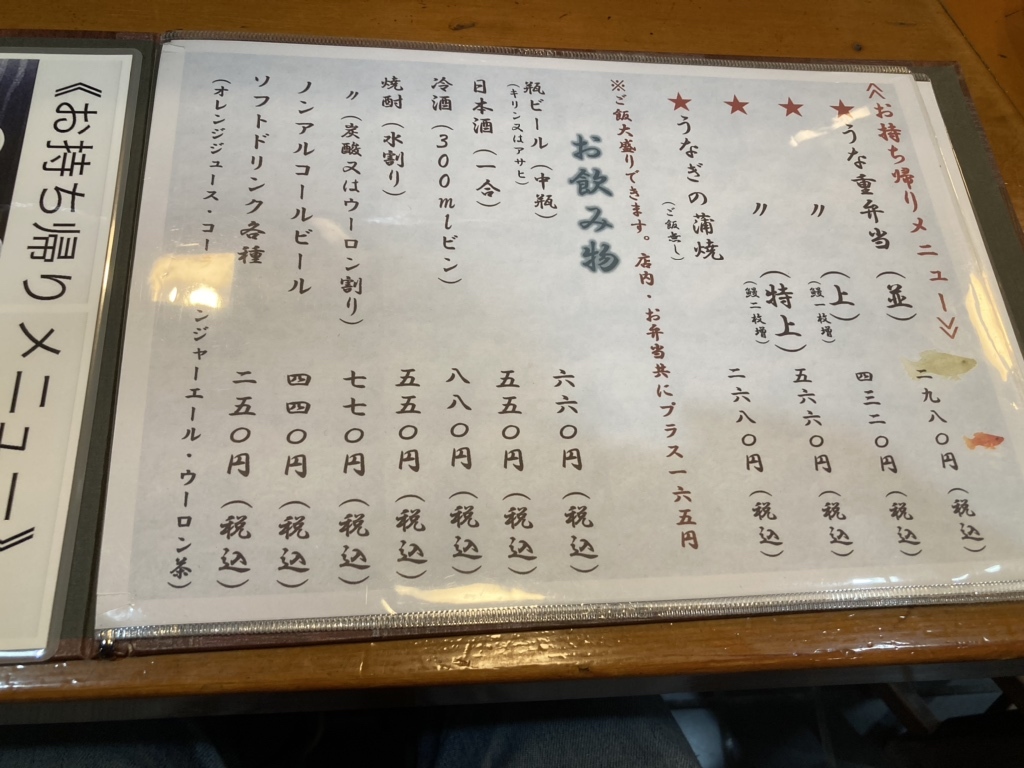 《お持ち帰りメニュー》
★うな重弁当(並) 二九八〇円(税込)
★〃(上) 四三二〇円(税込)
(鰻一枚増)
★〃(特上) 五六六〇円(税込)
(鰻二枚増)
★うなぎの蒲焼 二六八〇円(税込)
(ご飯無し)
※ご飯大盛りできます。店内・お弁当共にプラス一六五円
お飲み物
瓶ビール(中瓶) 六六〇円(税込)
(キリン又はアサヒ)
日本酒(一合) 五五〇円(税込)
冷酒(300mlビン) 八八〇円(税込)
焼酎(水割り) 五五〇円(税込)
〃(炭酸又はウーロン割り) 七七〇円(税込)
ノンアルコールビール 四四〇円(税込)
ソフトドリンク各種 二五〇円(税込)
(オレンジジュース・コー ンジャーエール・ウーロン茶)
《お持ち帰りメニュー》